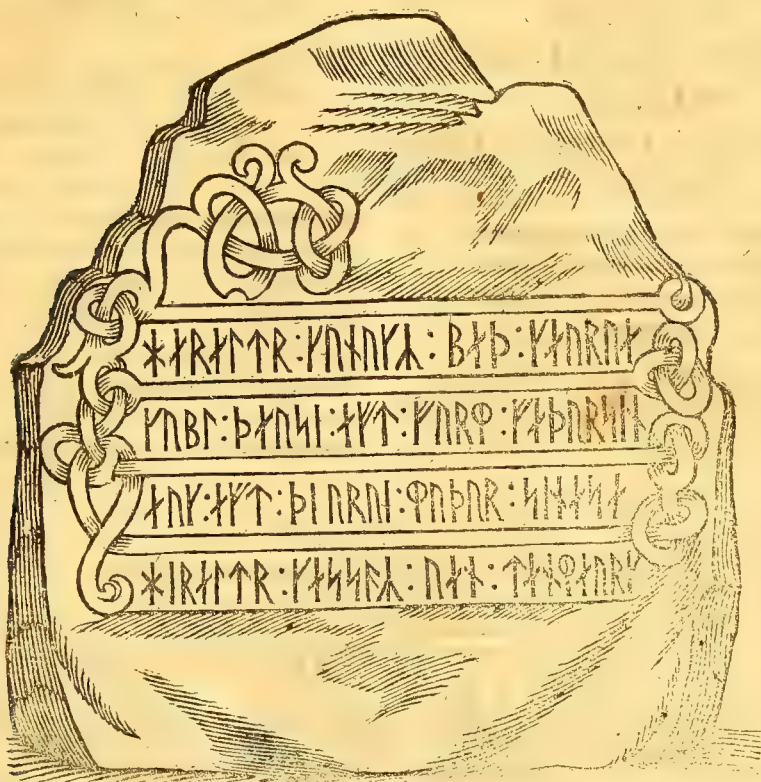 ᚼᛅᚱᛅᛚᛏᚱ:ᚴᚢᚾᚢᚴᛦ:ᛒᛅᚦ:ᚴᛅᚢᚱᚢᛅ
ᚴᚢᛒᛚ:ᚦᛅᚢᛋᛁ:ᛅᚠᛏ:ᚴᚢᚱᛘ:ᚠᛅᚦᚢᚱᛋᛁᚾ
ᛅᚢᚴ:ᛅᚠᛏ:ᚦᛁᚢᚱᚢᛁ:ᛘᚢᚦᚢᚱ:ᛋᛁᚾᛅᛋᛅ
ᚼᛁᚱᛅᛚᛏᚱ:ᚴᛅᛋᛋᚨᛦ:ᚢᛅᚾ:ᛏᛅᚾᛘᛅᚢᚱᚴ